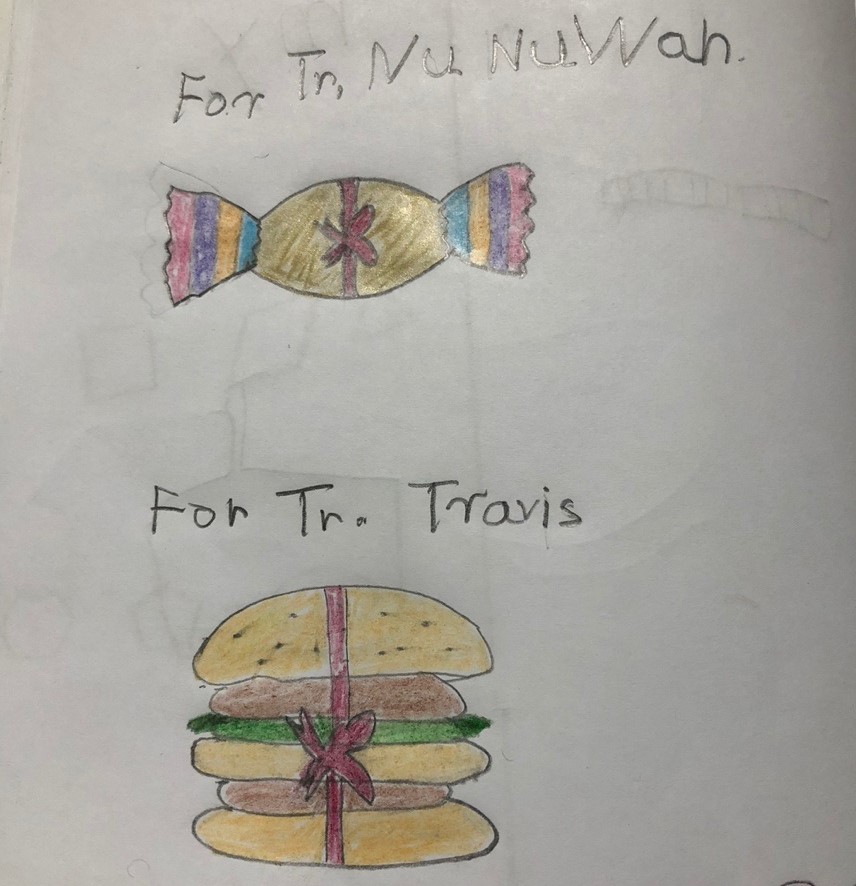 For Tr, Nu Nu Wah.
For Tr. Travis